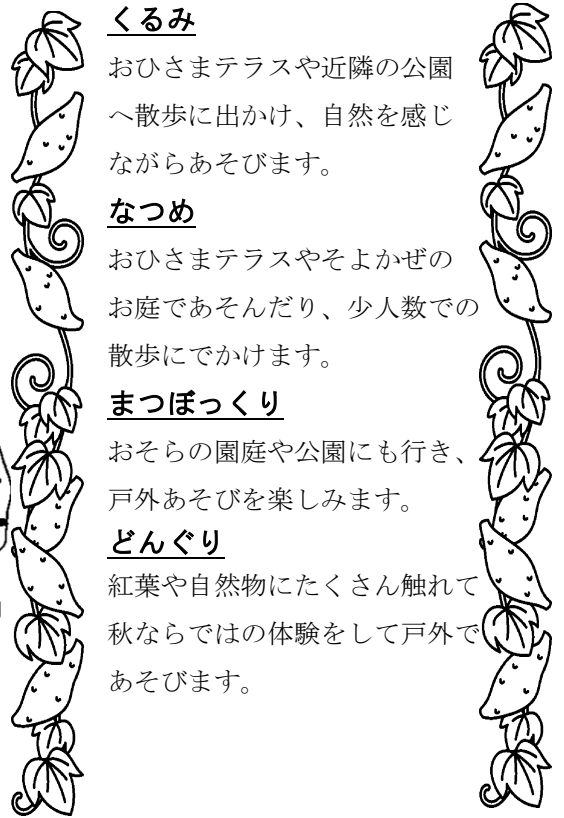 くるみ
おひさまテラスや近隣の公園
へ散歩に出かけ、自然を感じ
ながらあそびます。
なつめ
おひさまテラスやそよかぜの
お庭であそんだり、少人数での
散歩にでかけます。
まつぼっくり
おそらの園庭や公園にも行き、
戸外あそびを楽しみます。
どんぐり
紅葉や自然物にたくさん触れて
秋ならではの体験をして戸外で
あそびます。